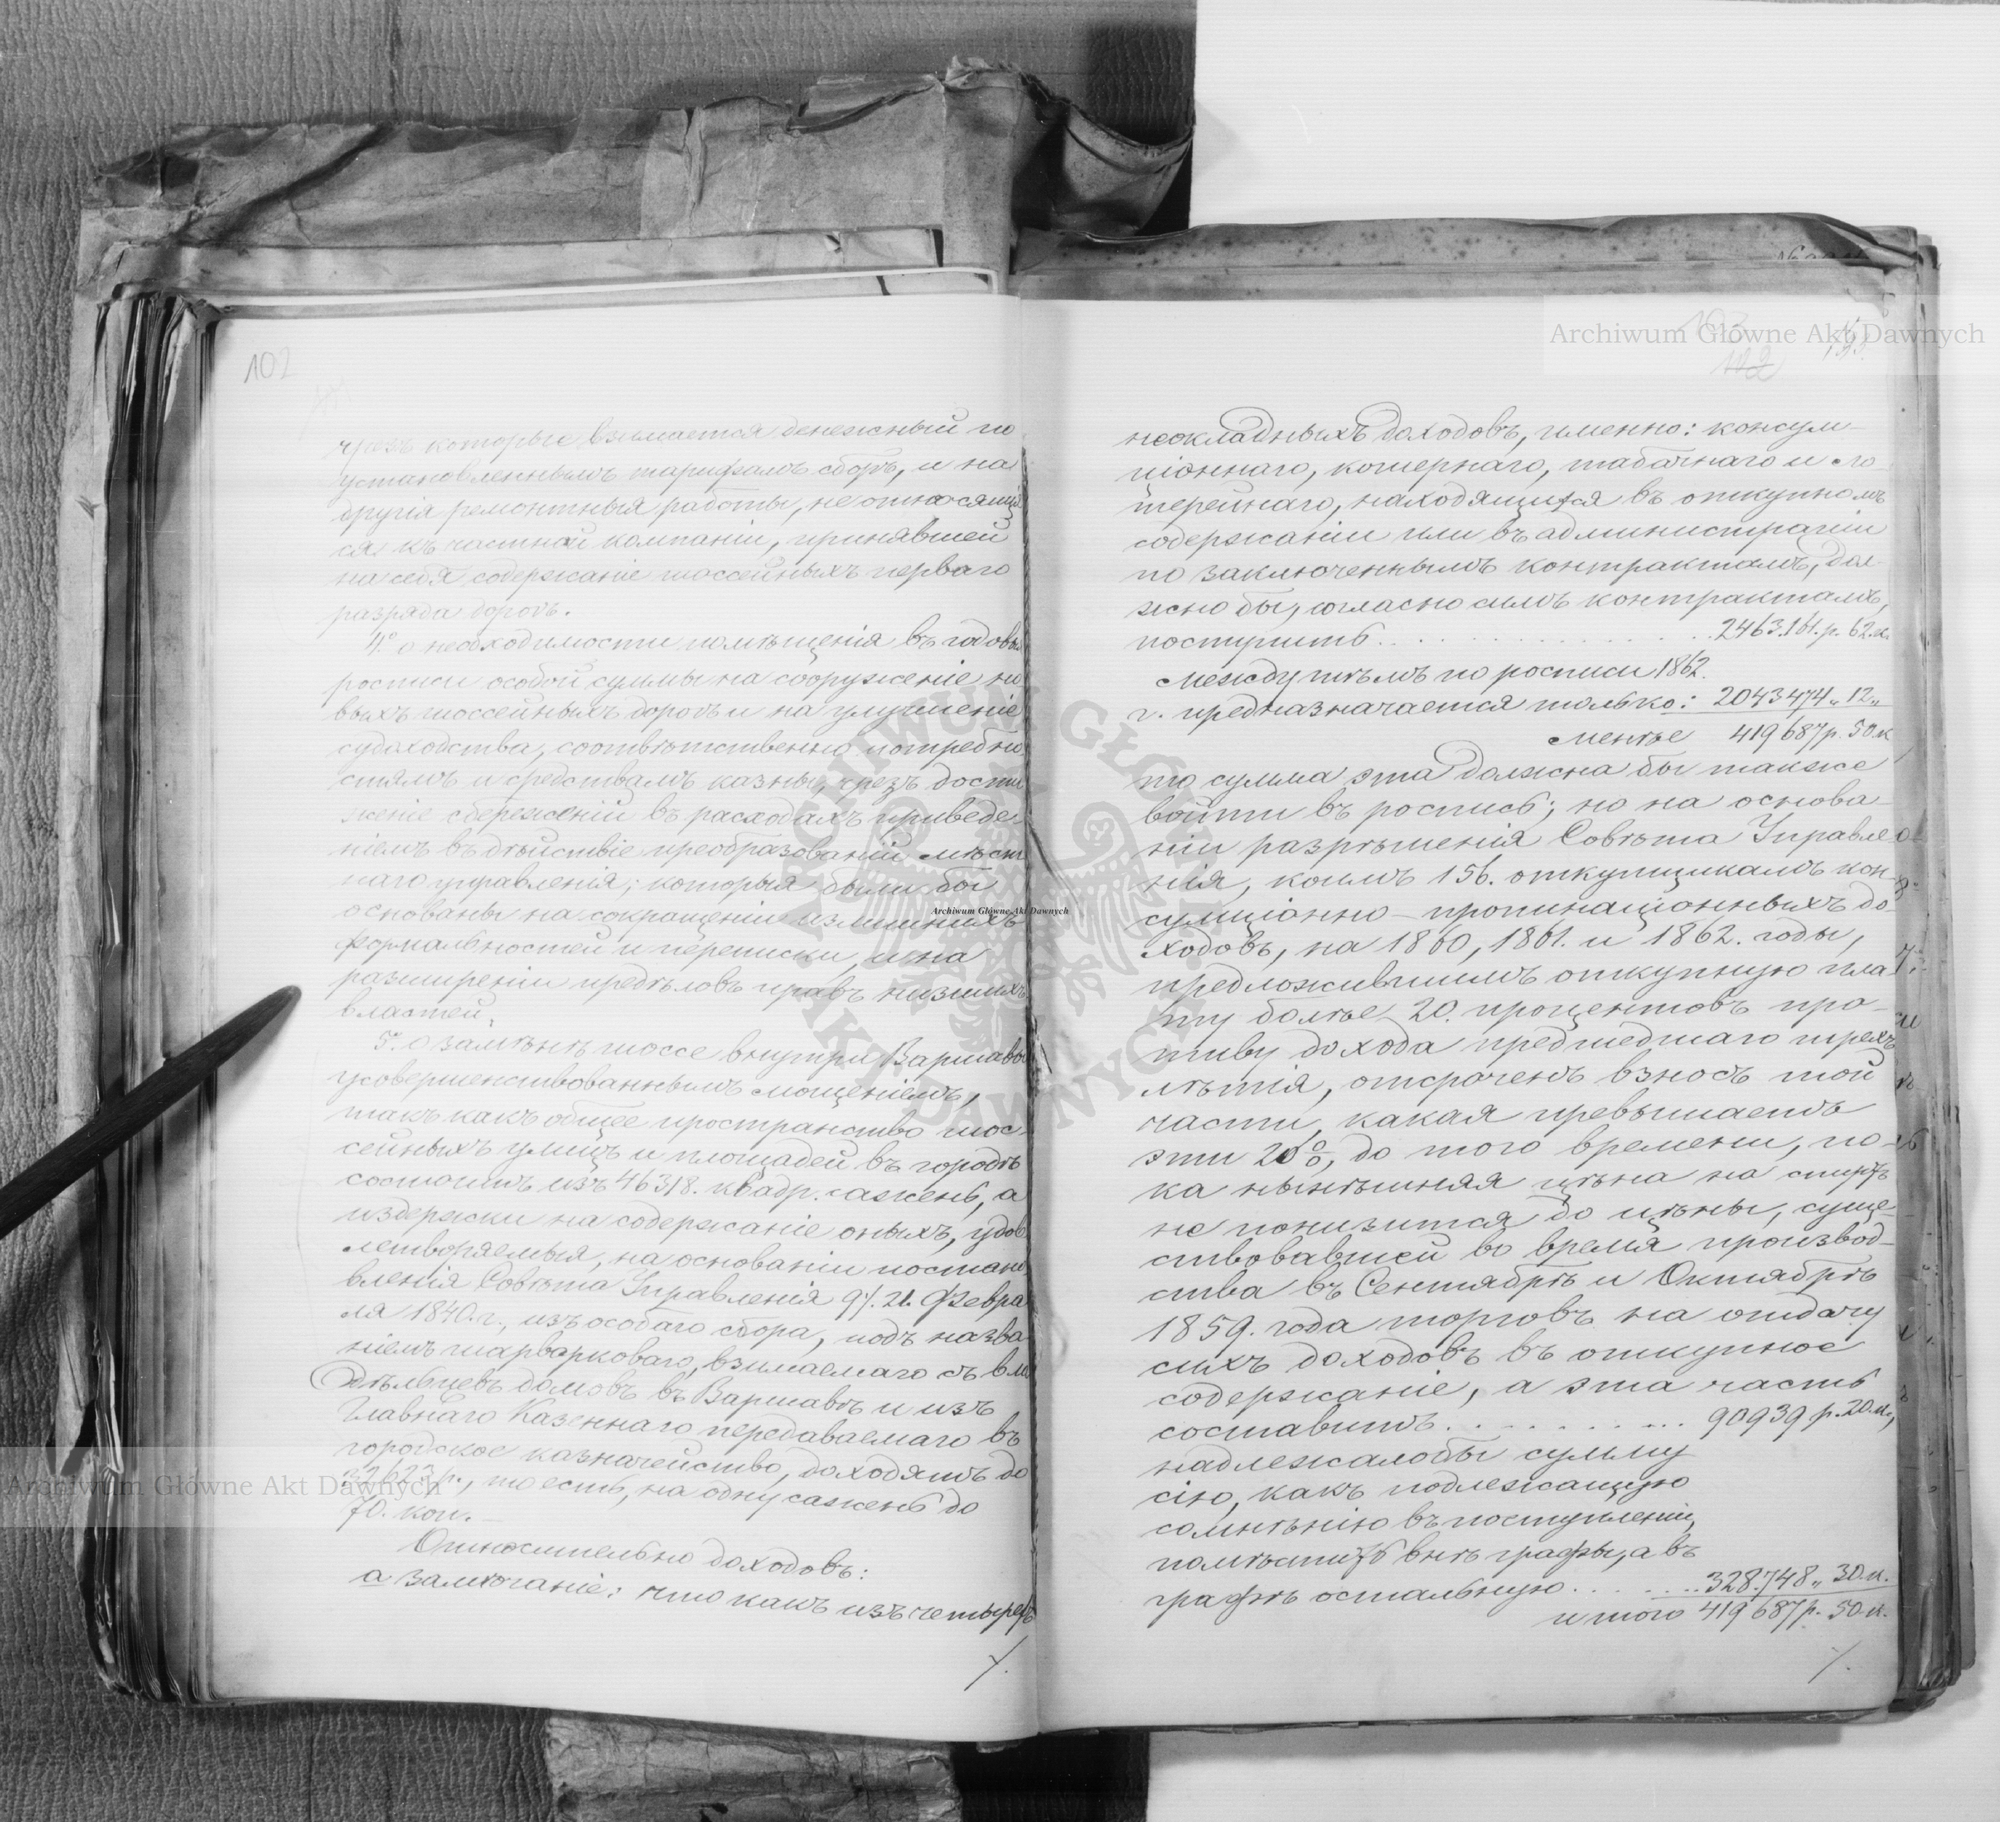 102
чрезъ которые взимается денежный по
установленнымъ тарифамъ сборъ, и на
другія ремонтныя работы, не относящія
ся къ частной компаніи, принявшей
на себя содержаніе шоссейныхъ перваго
разряда дорогъ.
4° о необходимости помѣщенія въ годовыя
росписи особой суммы на сооруженіе но
выхъ шоссейныхъ дорогъ и на улучшеніе
судоходства, соотвѣтственно потребно
стямъ и средствамъ казны, чрезъ дости
женіе сбереженій въ расходахъ приведе
ніемъ въ дѣйствіе преобразованій мѣст
наго управленія; которыя были бы
основаны на сокращеніи излишнихъ
формальностей и переписки, и на
разширеніи предѣловъ правъ низшихъ
властей.
5° о замѣнѣ шоссе внутри Варшавы
усовершенствованнымъ мощеніемъ,
такъ какъ общее пространство шос-
сейныхъ улицъ и площадей въ городѣ
состоитъ изъ 46318. квадр. сажень, а
издержки на содержаніе оныхъ, удов
летворяемыя, на основаніи постано
вленія Совѣта Управленія 9/21. Февра
ля 1840. г., изъ особаго сбора, подъ назва
ніемъ шарварковаго, взимаемаго съ вла
дѣльцевъ домовъ въ Варшавѣ и изъ
Главнаго Казеннаго передаваемаго въ
городское казначейство, доходятъ до
32623 р., то есть, на одну сажень до
70. коп.
Относительно доходовъ:
а замѣчаніе: что какъ изъ четырехъ
/.
103
102
неокладныхъ доходовъ, именно: консум-
піоннаго, кошернаго, табачнаго и ло
терейнаго, находящихся въ откупномъ
содержаніи или въ администраціи
по заключеннымъ контрактамъ, дол
жно бы, согласно симъ контрактамъ,
поступить . . . . . . . . . . 2463.161. р. 62. к.
Между тѣмъ по росписи 1862.
г. предназначается только: 2043474 „ 12 „
менѣе 419687 р. 50. к
то сумма эта должна бы также
войти въ роспись; но на основа-
ніи разрѣшенія Совѣта Управле
нія, коимъ 156. откупщикамъ кон-
сумціонно-пропинаціонныхъ до-
ходовъ, на 1860, 1861. и 1862. годы,
предложившимъ откупную пла
ту болѣе 20. процентовъ про-
тиву дохода предшедшаго трехъ
лѣтія, отсроченъ взносъ той
части, какая превышаетъ
эти 20%, до того времени, по-
ка нынѣшняя цѣна на спиртъ
не понизится до цѣны, суще-
ствовавшей во время производ-
ства въ Сентябрѣ и Октябрѣ
1859. года торговъ на отдачу
сихъ доходовъ въ откупное
содержаніе, а эта часть
составитъ . . . . . . . . . . 90939 р. 20. к.,
надлежалобы сумму
сію, какъ подлежащую
сомнѣнію въ поступленіи,
помѣстить внѣ графы, а въ
графѣ остальную . . . . . . . 328.748 „ 30. к.
итого 419687 р. 50. к.
/.
Archiwum Główne Akt Dawnych
Archiwum Główne Akt Dawnych
Archiwum Główne Akt Dawnych
ARCHIWUM GŁÓWNE AKT DAWNYCH